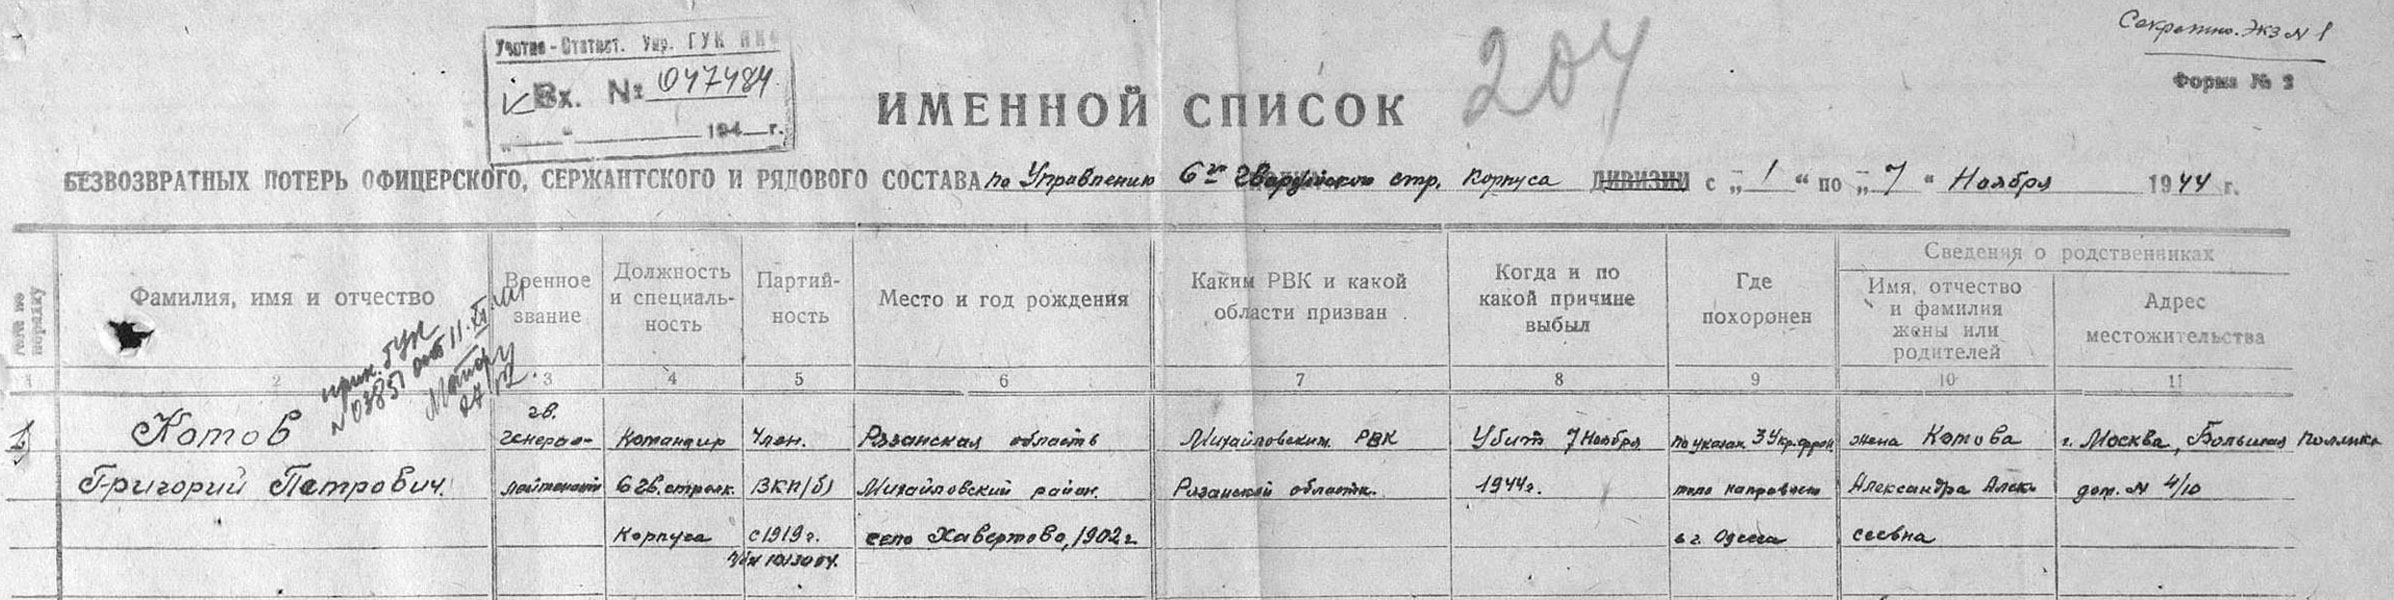 Секретно. Экз N 1
Форма № 2
Учетно-Статист. Упр. ГУК НКО
Вх. № 047484
194 г.
204
ИМЕННОЙ СПИСОК
БЕЗВОЗВРАТНЫХ ПОТЕРЬ ОФИЦЕРСКОГО, СЕРЖАНТСКОГО И РЯДОВОГО СОСТАВА по Управлению 6го Гвардейского стр. Корпуса ДИВИЗИИ с „1“ по „7“ Ноября 1944 г.
Сведения о родственниках
Фамилия, имя и отчество
Военное
звание
Должность
и специаль-
ность
Партий-
ность
Место и год рождения
Каким РВК и какой
области призван
Когда и по
какой причине
выбыл
Где
похоронен
Имя, отчество
и фамилия
жены или
родителей
Адрес
местожительства
прик. ГУК
N 03851 от 11.XI
1 2 3 4 5 6 7 8 9 10 11
гв.
Котов генерал- Командир Член. Рязанская область Михайловским РВК Убит 7 Ноября по указан. 3 Укр. фрон. жена Котова г. Москва, Большая
Григорий Петрович. лейтенант 6 гв. стрелк. ВКП/б/ Михайловский район. Рязанской области. 1944г. тело направлено Александра Алек- дом. N 4/10
Корпуса с 1919г. село Хавертово, 1902г в г. Одесса сеевна